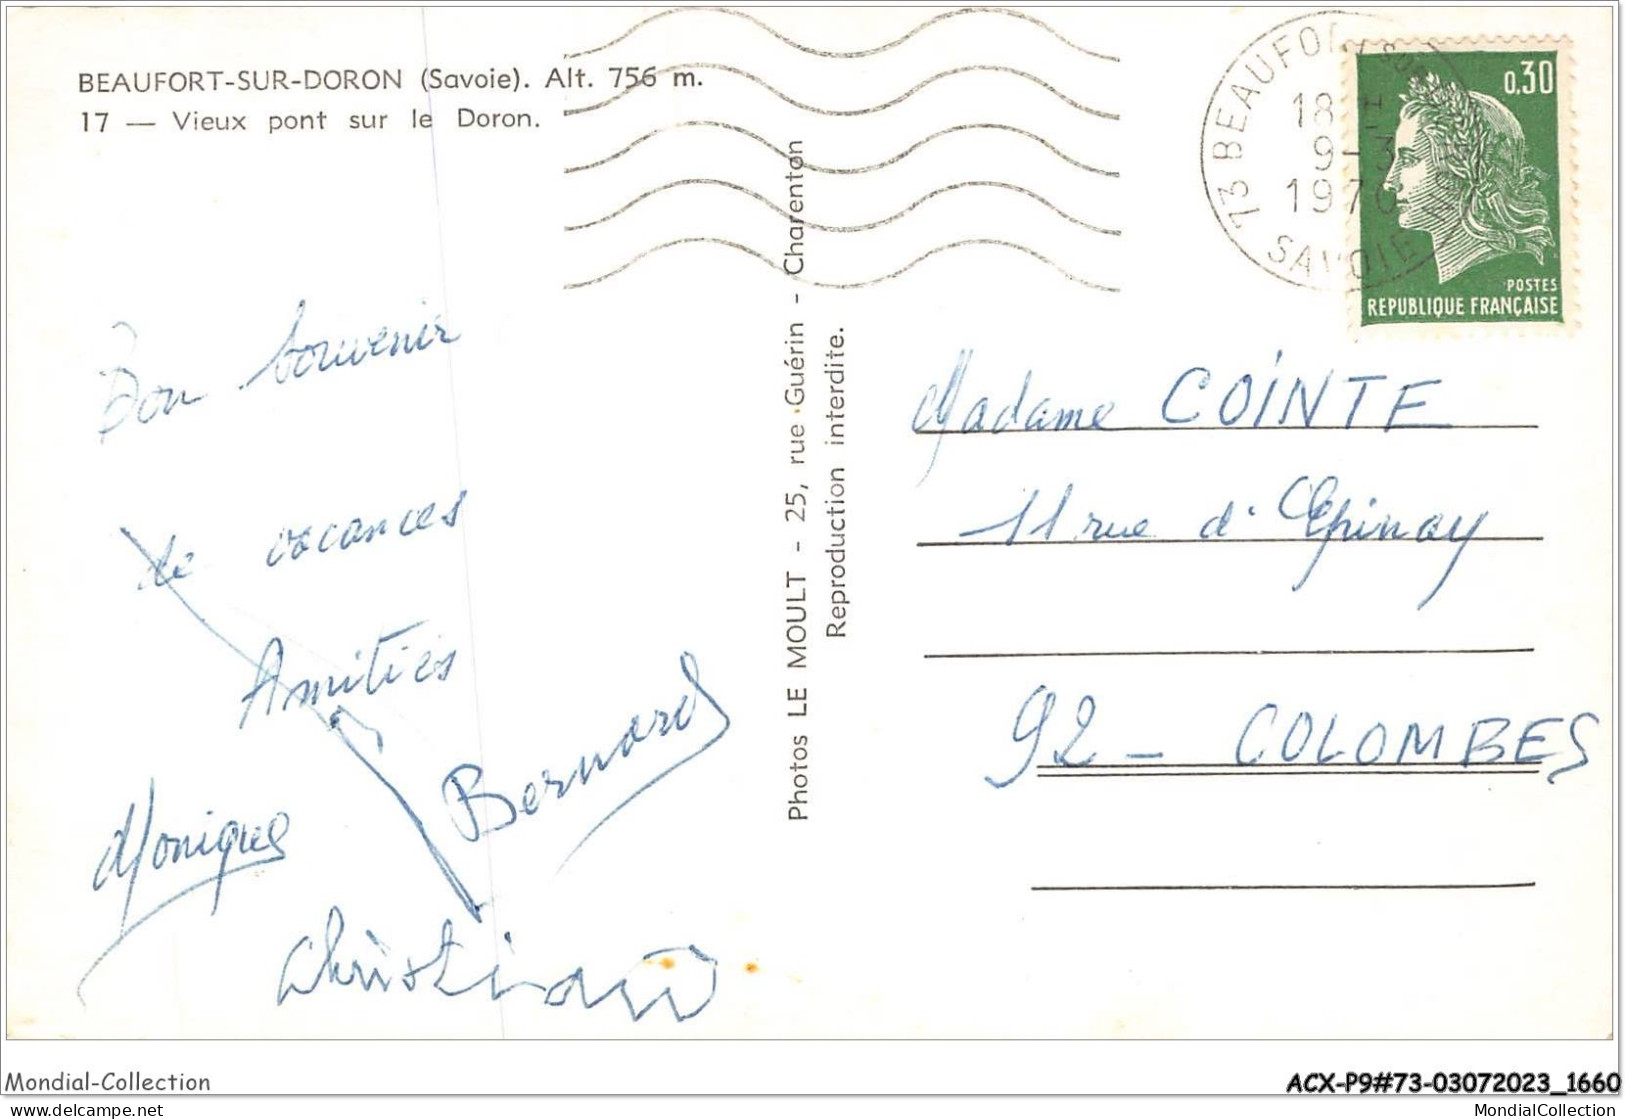 BEAUFORT-SUR-DORON (Savoie). Alt. 756 m.
17 — Vieux pont sur le Doron.
73 BEAUFORT SUR
18 H
9-3
1970
SAVOIE
0,30
POSTES
REPUBLIQUE FRANÇAISE
Bon souvenir
de vacances
Amitiés
Monique
Bernard
Photos LE MOULT - 25, rue Guérin - Charenton
Reproduction interdite.
Madame COINTE
11 rue d'Epinay
92 - COLOMBES
Mondial-Collection
ACX-P9#73-03072023_1660
www.delcampe.net
MondialCollection